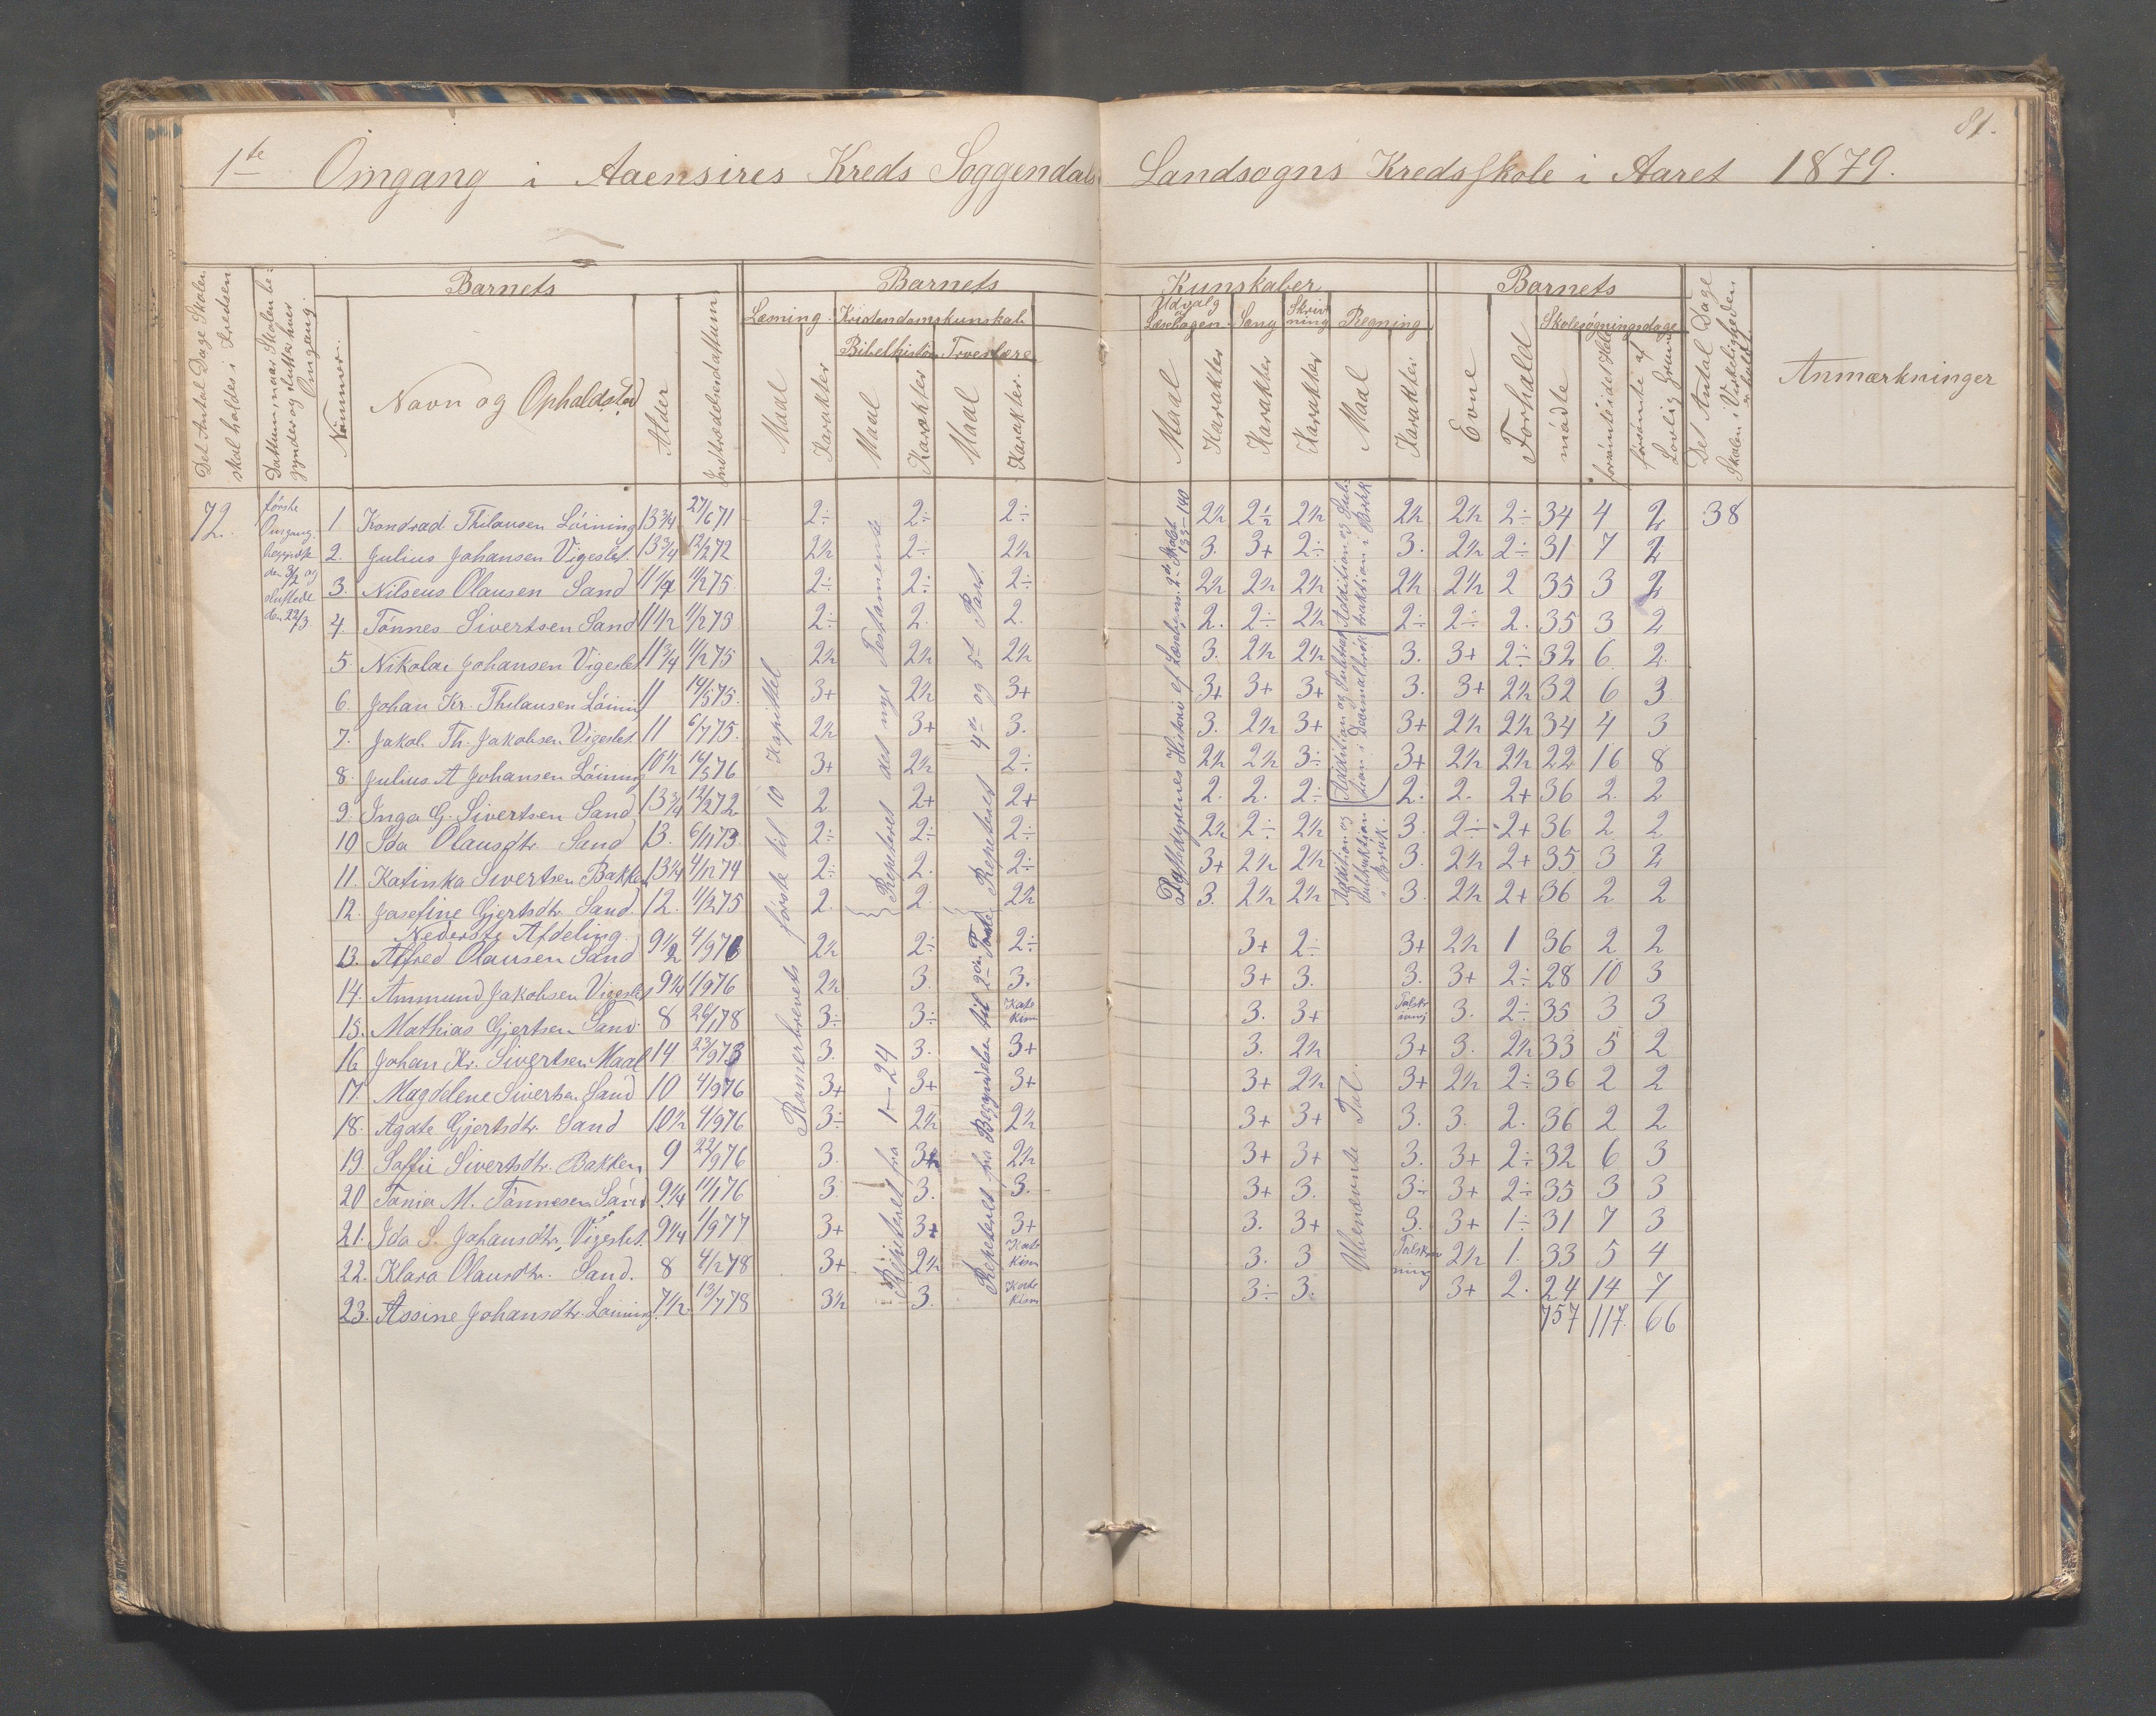 81.
1te Omgang i Aaensires Kreds Soggendals Landsogns Kredsskole i Aaret 1879.
Det Antal Dage Skolen skal holdes i Kredsen
Dattum, naar Skolen begynder og slutte hver Omgang.
Barnets
Nummer.
Navn og Opholdsted
Alder
Indtrædelsesdattum
Barnets Kunskaber
Læsning. Kristendomskunskab
Bibelhistorie Troeslære
Maal Karakter Maal Karakter Maal Karakter.
Udvalg af Læsebogen. Sang Skrivning Regning
Maal Karakter Karakter Karakter Maal Karakter
Barnets
Evne Forhold Skolesøgningsdage
mødte forsømte i det Hele forsømte af Lovlig Grund
Det Antal Dage Skolen i Virkeligheden er holdt
Anmærkninger
72. første Omgang begyndte den 3/2 og sluttede den 22/3.
1 Kondrad Thilausen Löining 13 3/4 27/6 71 2÷ 2÷ 2÷ 2½ 2½ 2½ 2½ 2½ 2÷ 34 4 2 38
2. Julius Johansen Vigeslet. 13 3/4 12/2 72 2½ 2÷ 2½ 3. 3+ 2÷ 3. 2½ 2÷ 31 7 2
3. Nilseus Olausen Sand 11 1/4 11/2 75. 2÷ 2÷ 2÷ 2½ 2½ 2½ 2½ 2½ 2 35 3 2
4. Tönnes Sivertsen Sand 11½ 11/2 75 2÷ 2. 2. 2. 2÷ 2½ 2÷ 2÷ 2. 35 3 2
5. Nikolai Johansen Vigeslet 11 3/4 11/2 75 2½ 2½ 2½ 3. 2½ 2½ 3. 3+ 2÷ 32 6. 2.
6. Johan Kr. Thilausen Löining 11 14/5 75. 3+ 2½ 3+ 3+ 3+ 3+ 3. 3+ 2½ 32 6 3
7. Jakob Th. Jakobsen Vigeslet. 11 6/7 75. 2½ 3+ 3. 3. 2½ 3+ 3+ 2½ 2½ 34 4 3
8. Julius A Johansen Löining 10½ 14/5 76 3+ 2½ 2÷ 2½ 2½ 3÷ 3+ 2½ 2½ 22 16 8
9. Inga G. Sivertsen Sand 13 3/4 12/2 72 2 2+ 2+ 2. 2. 2÷ 2. 2. 2+ 36 2. 2
10 Ida Olausdtr. Sand 13. 6/11 73. 2÷ 2÷ 2÷ 2½ 2÷ 2½ 3. 2÷ 2+ 36 2 2
11. Katinka Sivertsen Bakken 13 1/4 4/12 74 2÷ 2. 2÷ 3+ 2½ 2½ 3. 2½ 2+ 35 3 2
12. Josefine Gjertsdtr. Sand. 12. 11/2 75 2. 2. 2½ 3. 2½ 2½ 3. 2½ 2+ 36 2 2
Nederste Afdeling.
13. Alfred Olausen Sand 9½ 4/9 76 2½ 2÷ 2÷ 3+ 2÷ 3+ 2½ 1 36 2 2
14. Ammund Jakobsen Vigeslet 9 1/4 1/9 76 2½ 3. 3. 3+ 3. 3. 3+ 2÷ 28 10 3
15. Mathias Gjertsen Sand 8 26/1 78 3÷ 3÷ Katekism 3. 3+ 3. 2÷ 35 3 3
16 Johan Kr. Sivertsen Maal 14. 23/9 73 3. 3. 3+ 3. 2½ 3+ 3. 2½ 33 5 2
17. Magdelene Sivertsen Sand 10 4/9 76 3+ 3+ 3+ 3+ 2½ 3+ 2½ 2÷ 36 2 2
18. Agate Gjertsdtr. Sand 10½ 4/9 76 3÷ 2½ 2½ 3+ 3+ 3. 3. 2. 36 2 2
19. Soffie Sivertsdtr. Bakken 9 22/9 76 3. 3+ 2½ 3+ 3+ 3. 3+ 2÷ 32 6 3
20 Tonia M. Tönnesen Sand 9 1/4 11/1 76 3. 3. 3. 3+ 3. 3÷ 3+ 2÷ 35 3 3
21. Ida S. Johansdtr. Vigeslet. 9 1/4 1/9 77 3+ 3+ 3+ 3. 3+ 3. 3+ 1÷ 31 7 3
22. Klara Olausdtr. Sand. 8 4/2 78 3+ 2½ Katekism 3. 3 2½ 1. 33 5 4
23. Assine Johansdtr. Löining. 7½ 13/7 78 3½ 3. Katekism 3÷ 3. 3+ 2. 24 14 7
757 117. 66
Romerbrevets første til 10 Kapittel
Repeteret det nye Testamente
Repeteret fra 1—24
Repeteret 4de og 5te Part.
Repeteret fra Begyndelsen til 2den Part
Addition og Subtraktion i Brøk
Addition og Subtraktion i Decimalbrøk
Addition og Subtraktion i Brøk.
Ubenævnte Tal.